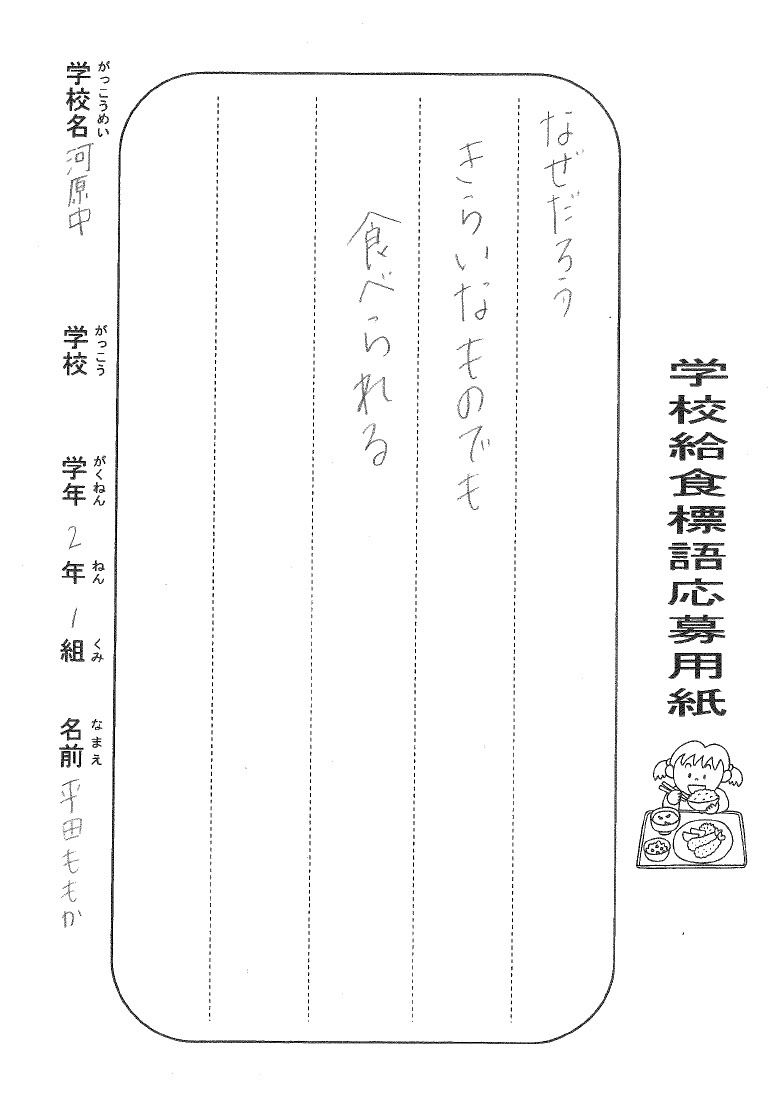 学校給食標語応募用紙
なぜだろう
きらいなものでも
食べられる
がっこうめい がっこう がくねん ねん くみ なまえ
学校名 河原中 学校 学年 2年 1組 名前 平田ももか